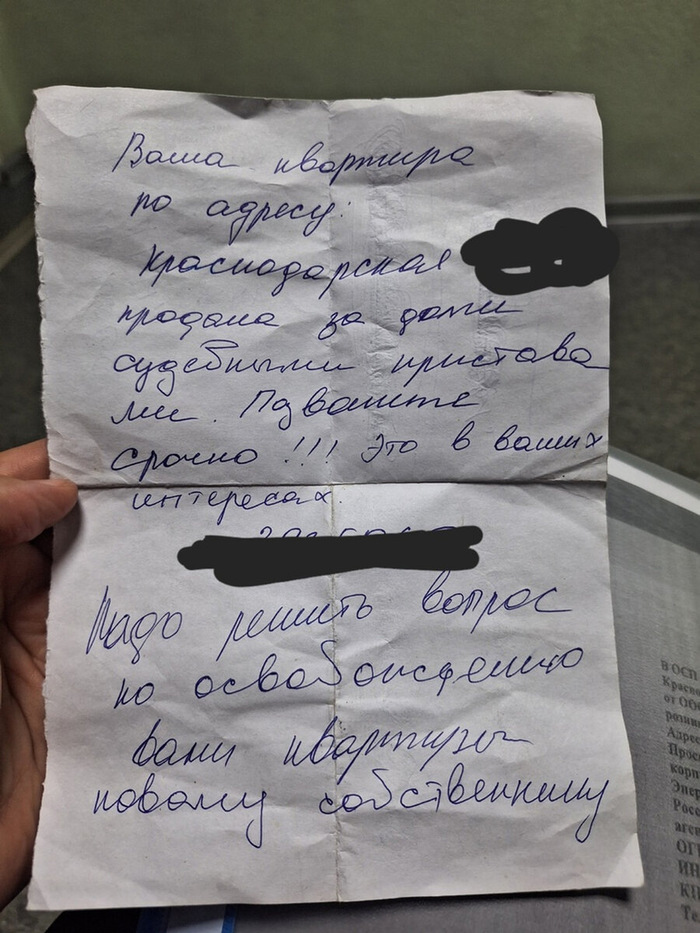 Ваша квартира
по адресу:
Краснодарская
продана за долги
судебными пристава
ми. Позвоните
срочно!!! Это в ваших
интересах.
Надо решить вопрос
по освобождению
вами квартиры
новому собственнику
В ОСП
Красно
от ОО
Адрес
Прос
корп
Энер
Росс
аген
ОГР
ИН
КП
Тел